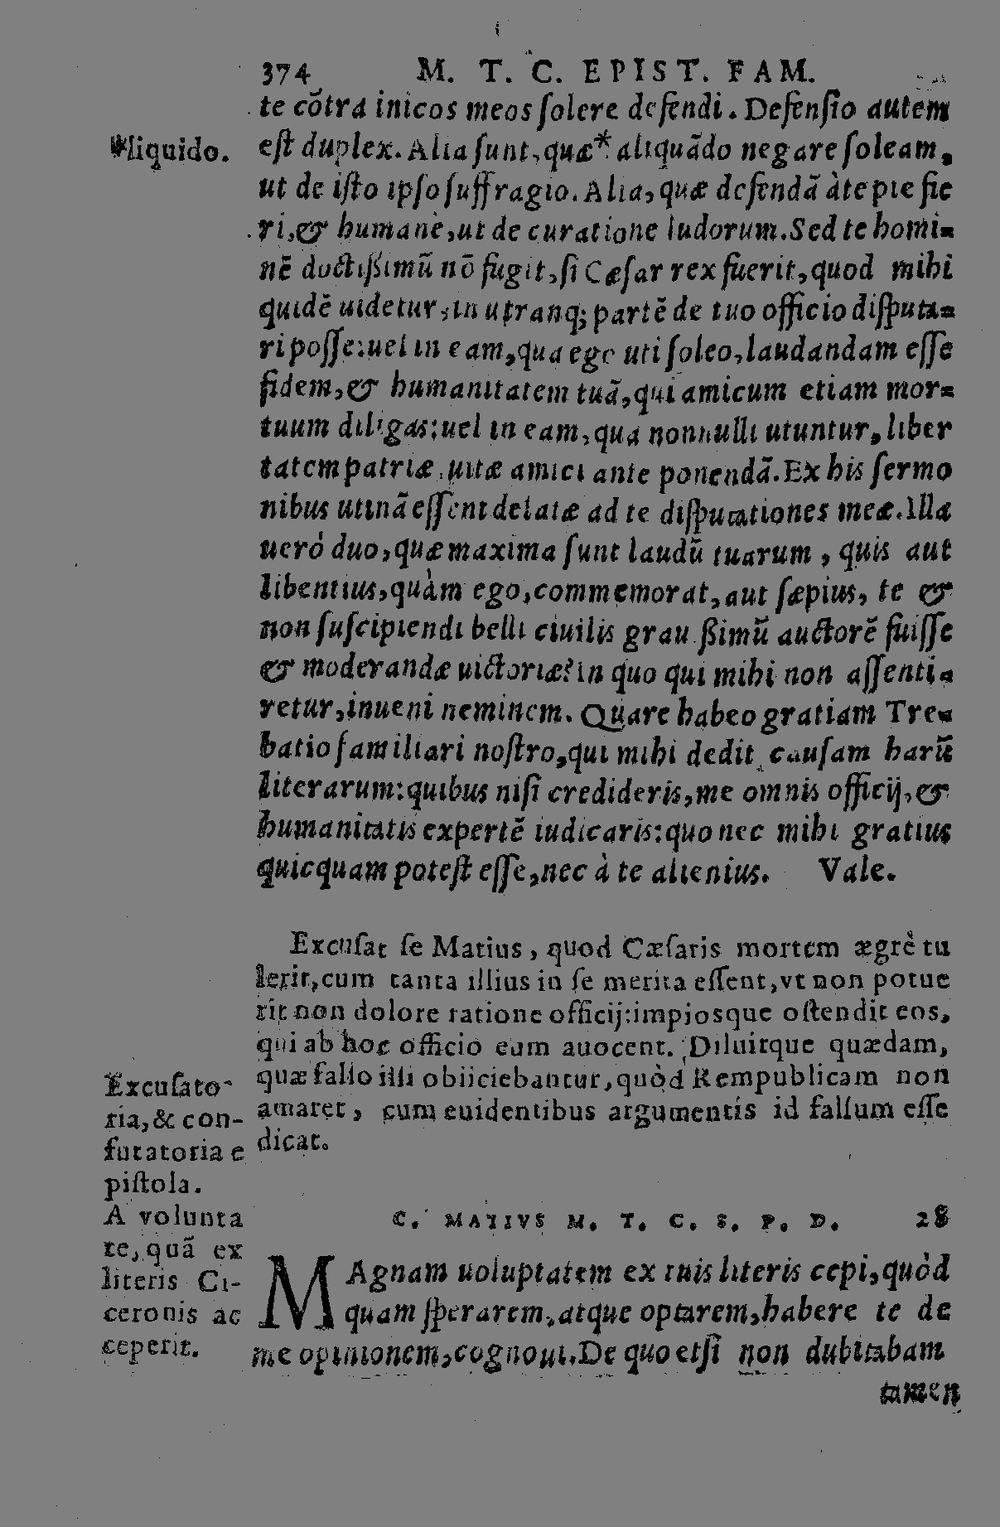 374 M. T. C. EPIST. FAM.
te cõtra inicos meos ſolere defendi. Defenſio autem
*liquido.
eſt duplex. Alia ſunt, quæ* aliquãdo negare ſoleam,
ut de iſto ipſo ſuffragio. Alia, quæ defendã à te pie fie
ri, & humanè, ut de curatione ludorum. Sed te homi=
nẽ doctißimũ nõ fugit, ſi Cæſar rex fuerit, quod mihi
quidẽ uidetur, in utranq; partẽ de tuo officio diſputa=
ri poſſe: uel in eam, qua ego uti ſoleo, laudandam eſſe
fidem, & humanitatem tuã, qui amicum etiam mor=
tuum diligas: uel in eam, qua nonnulli utuntur, liber
tatem patriæ uitæ amici ante ponendã. Ex his ſermo
nibus utinã eſſent delatæ ad te diſputationes meæ. Illa
uerò duo, quæ maxima ſunt laudũ tuarum, quis aut
libentius, quàm ego, commemorat, aut ſæpius, te &
non ſuſcipiendi belli ciuilis grauißimũ auctorẽ fuiſſe
& moderandæ uictoriæ? in quo qui mihi non aſſenti=
retur, inueni neminem. Quare habeo gratiam Tre=
batio familiari noſtro, qui mihi dedit cauſam harũ
literarum: quibus niſi credideris, me omnis officij, &
humanitatis expertẽ iudicaris: quo nec mihi gratius
quicquam poteſt eſſe, nec à te alienius. Vale.
Excuſat ſe Matius, quod Cæſaris mortem ægrè tu
lerit, cum tanta illius in ſe merita eſſent, vt non potue
rit non dolore ratione officij: impiosque oſtendit eos,
qui ab hoc officio eum auocent. Diluitque quædam,
quæ falſo illi obiiciebantur, quòd Rempublicam non
amaret, cum euidentibus argumentis id falſum eſſe
dicat.
Excuſato-
ria, & con-
futatoria e
piſtola.
A volunta
te, quã ex
literis Ci-
ceronis ac
ceperit.
C. MATIVS M. T. C. S. P. D. 28
MAgnam uoluptatem ex tuis literis cepi, quòd
quam ſperarem, atque optarem, habere te de
me opinionem, cognoui. De quo etſi non dubitabam
tamen